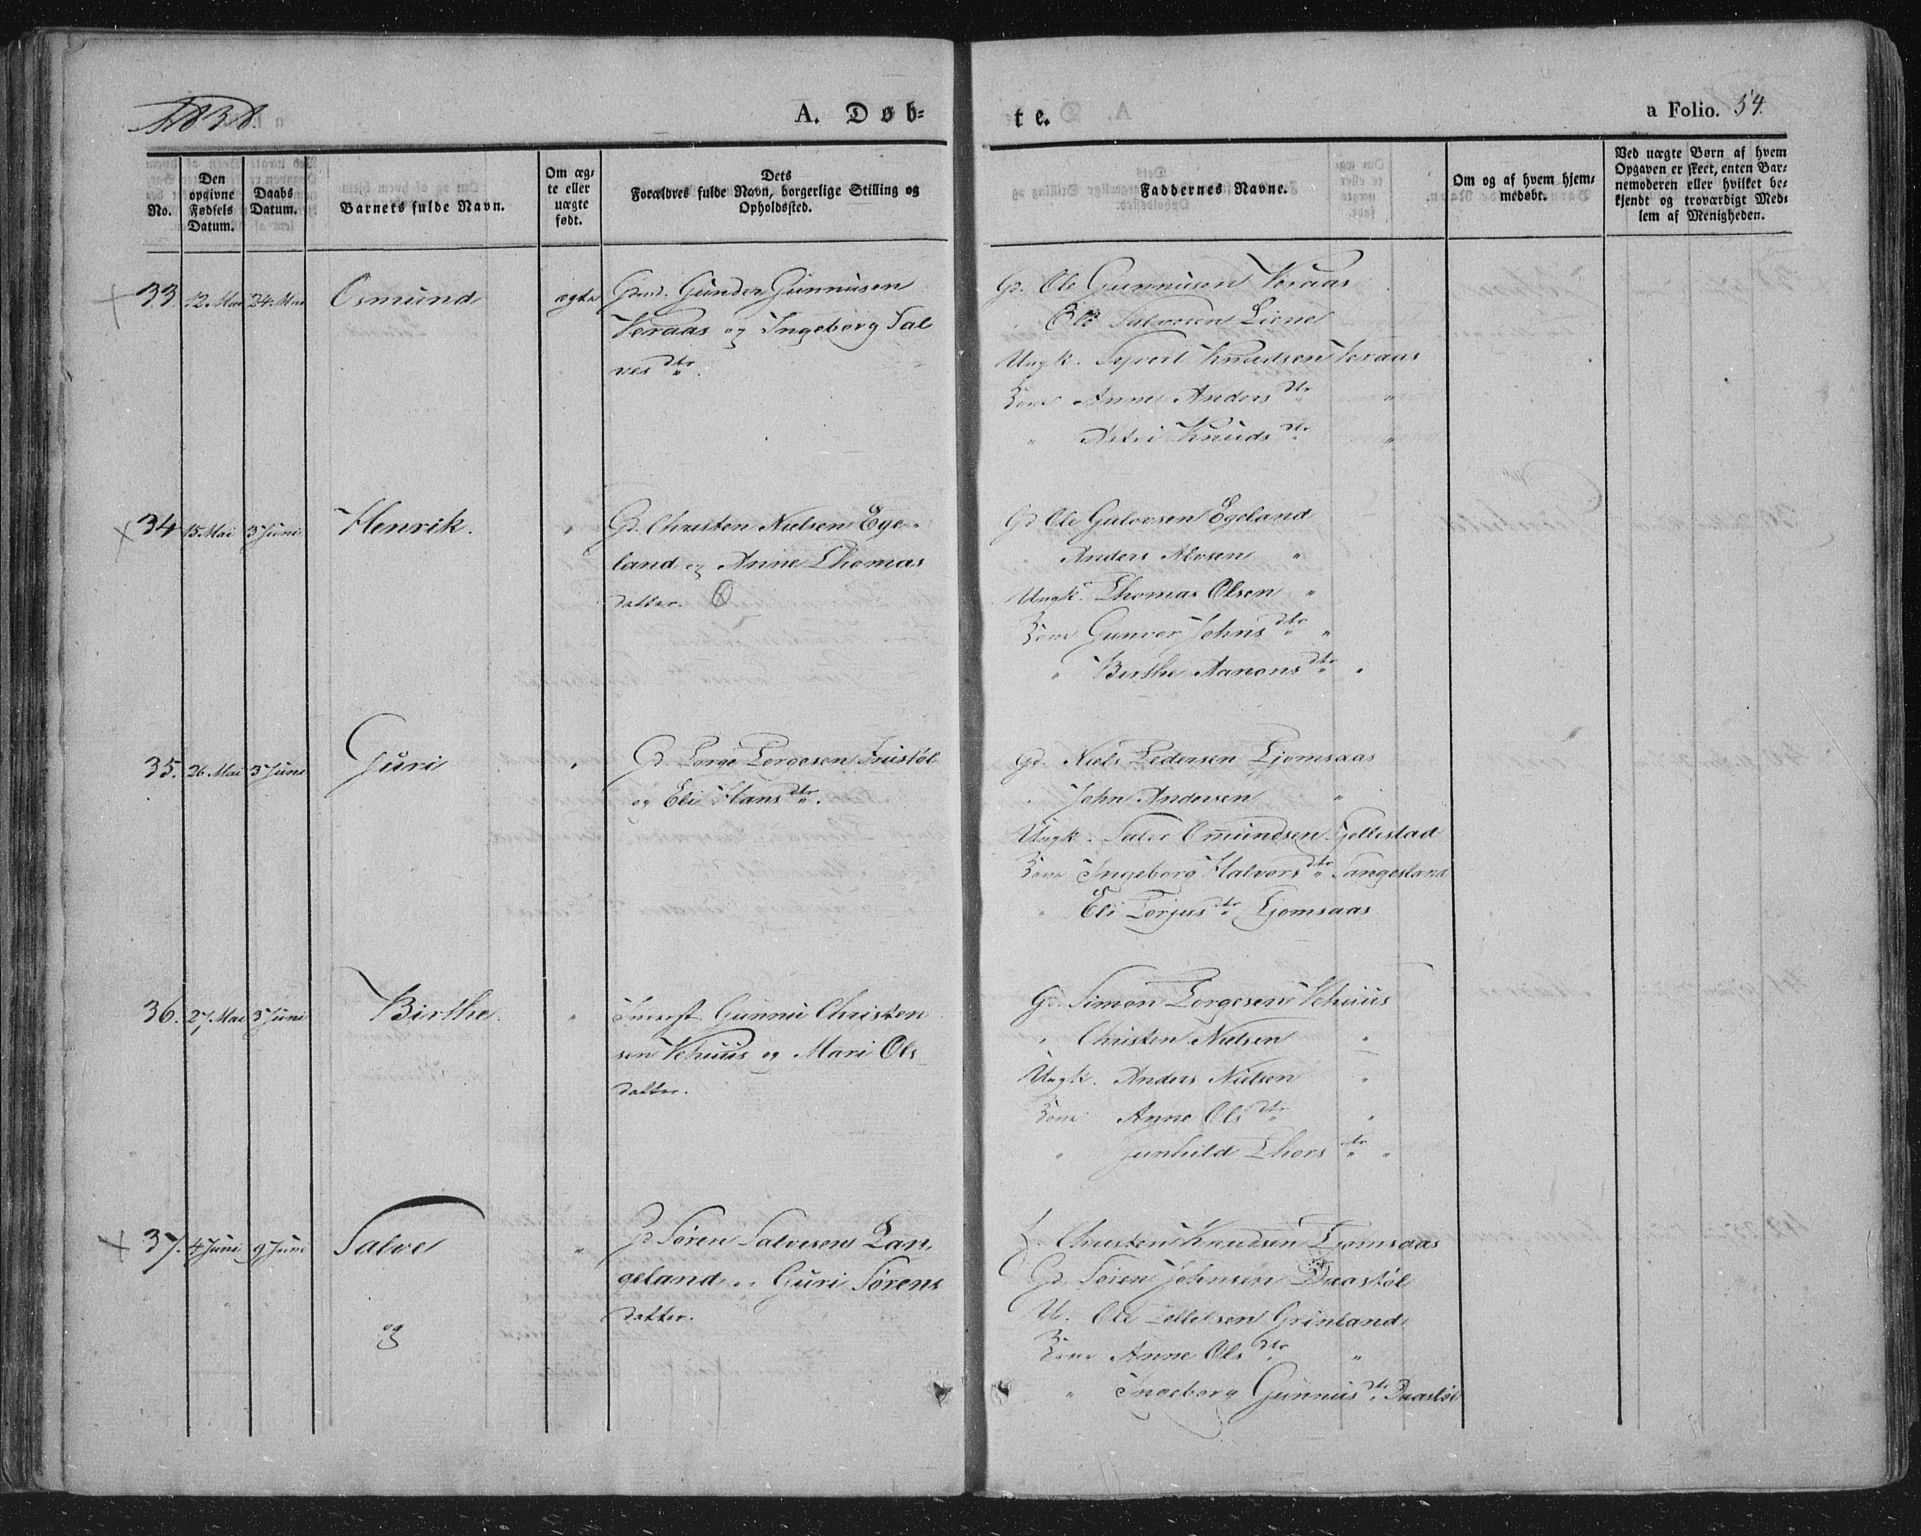 1838.
A. Døb-
te.
a Folio. 54.
No.
Den opgivne Fødsels Datum.
Daabs Datum.
Barnets fulde Navn.
Om æg-
te eller
uægte
født.
Dets
Forældres fulde Navn, borgerlige Stilling og
Opholdssted.
Faddernes Navne.
Om og af hvem hjem-
medøbt.
Ved uægte Børn af hvem
Opgaven er skeet, enten Bar-
nemoderen eller hvilket be-
kjendt og troværdigt Med-
lem af Menigheden.
33 12. Mai 24. Mai Osmund ægte
Gunder Gunnusen
Veraas og Ingeborg Sal
ves dtr.
Gd. Ole Gunnusen Veraas
Ole Salvesen Liene
Ungk. Syvert Knudsen Veraas
Kone Anne Anders dtr "
" Astri Knuds dtr "
34 15 Mai 3 Juni Henrik. "
Gd. Christen Nielsen Ege-
land og Anne Thomas
datter.
Gd Ole Gulovsen Egeland
Anders Alvsen "
Ungk. Thomas Olsen "
Kone Gunvor Johns dtr "
" Berthe Aanons dtr "
35. 26 Mai 3 Juni Guri "
Gd. Torge Torgesen Fuistøl
og Eli Hans dtr.
Gd. Niels Pedersen Tjomsaas
" John Andersen "
Ungk. Salve Omundsen Tjellestad
Kone Ingeborg Halvors dtr Sangesland
" Eli Torjus dtr Tjomsaas
36. 27 Mai 3 Juni Birthe. "
Inderst Gunnu Christen
sen Vehuus og Mari Ols
datter.
Gd. Simon Torgesen Vehuus
" Christen Nielsen "
Ungk. Anders Nielsen "
Kone Anne Ols dtr "
" Gunhild Thors dtr "
37. 4 Juni 9 Juni Salve "
og
Gd Søren Salvesen Lan-
geland og Guri Sørens
datter.
Christen Knudsen Tjomsaas
Gd. Søren Johnsen Daastøl
U. Ole Tellefsen Grinland
Kone Anne Ols dtr "
" Ingeborg Gunnus dtr Daastøl